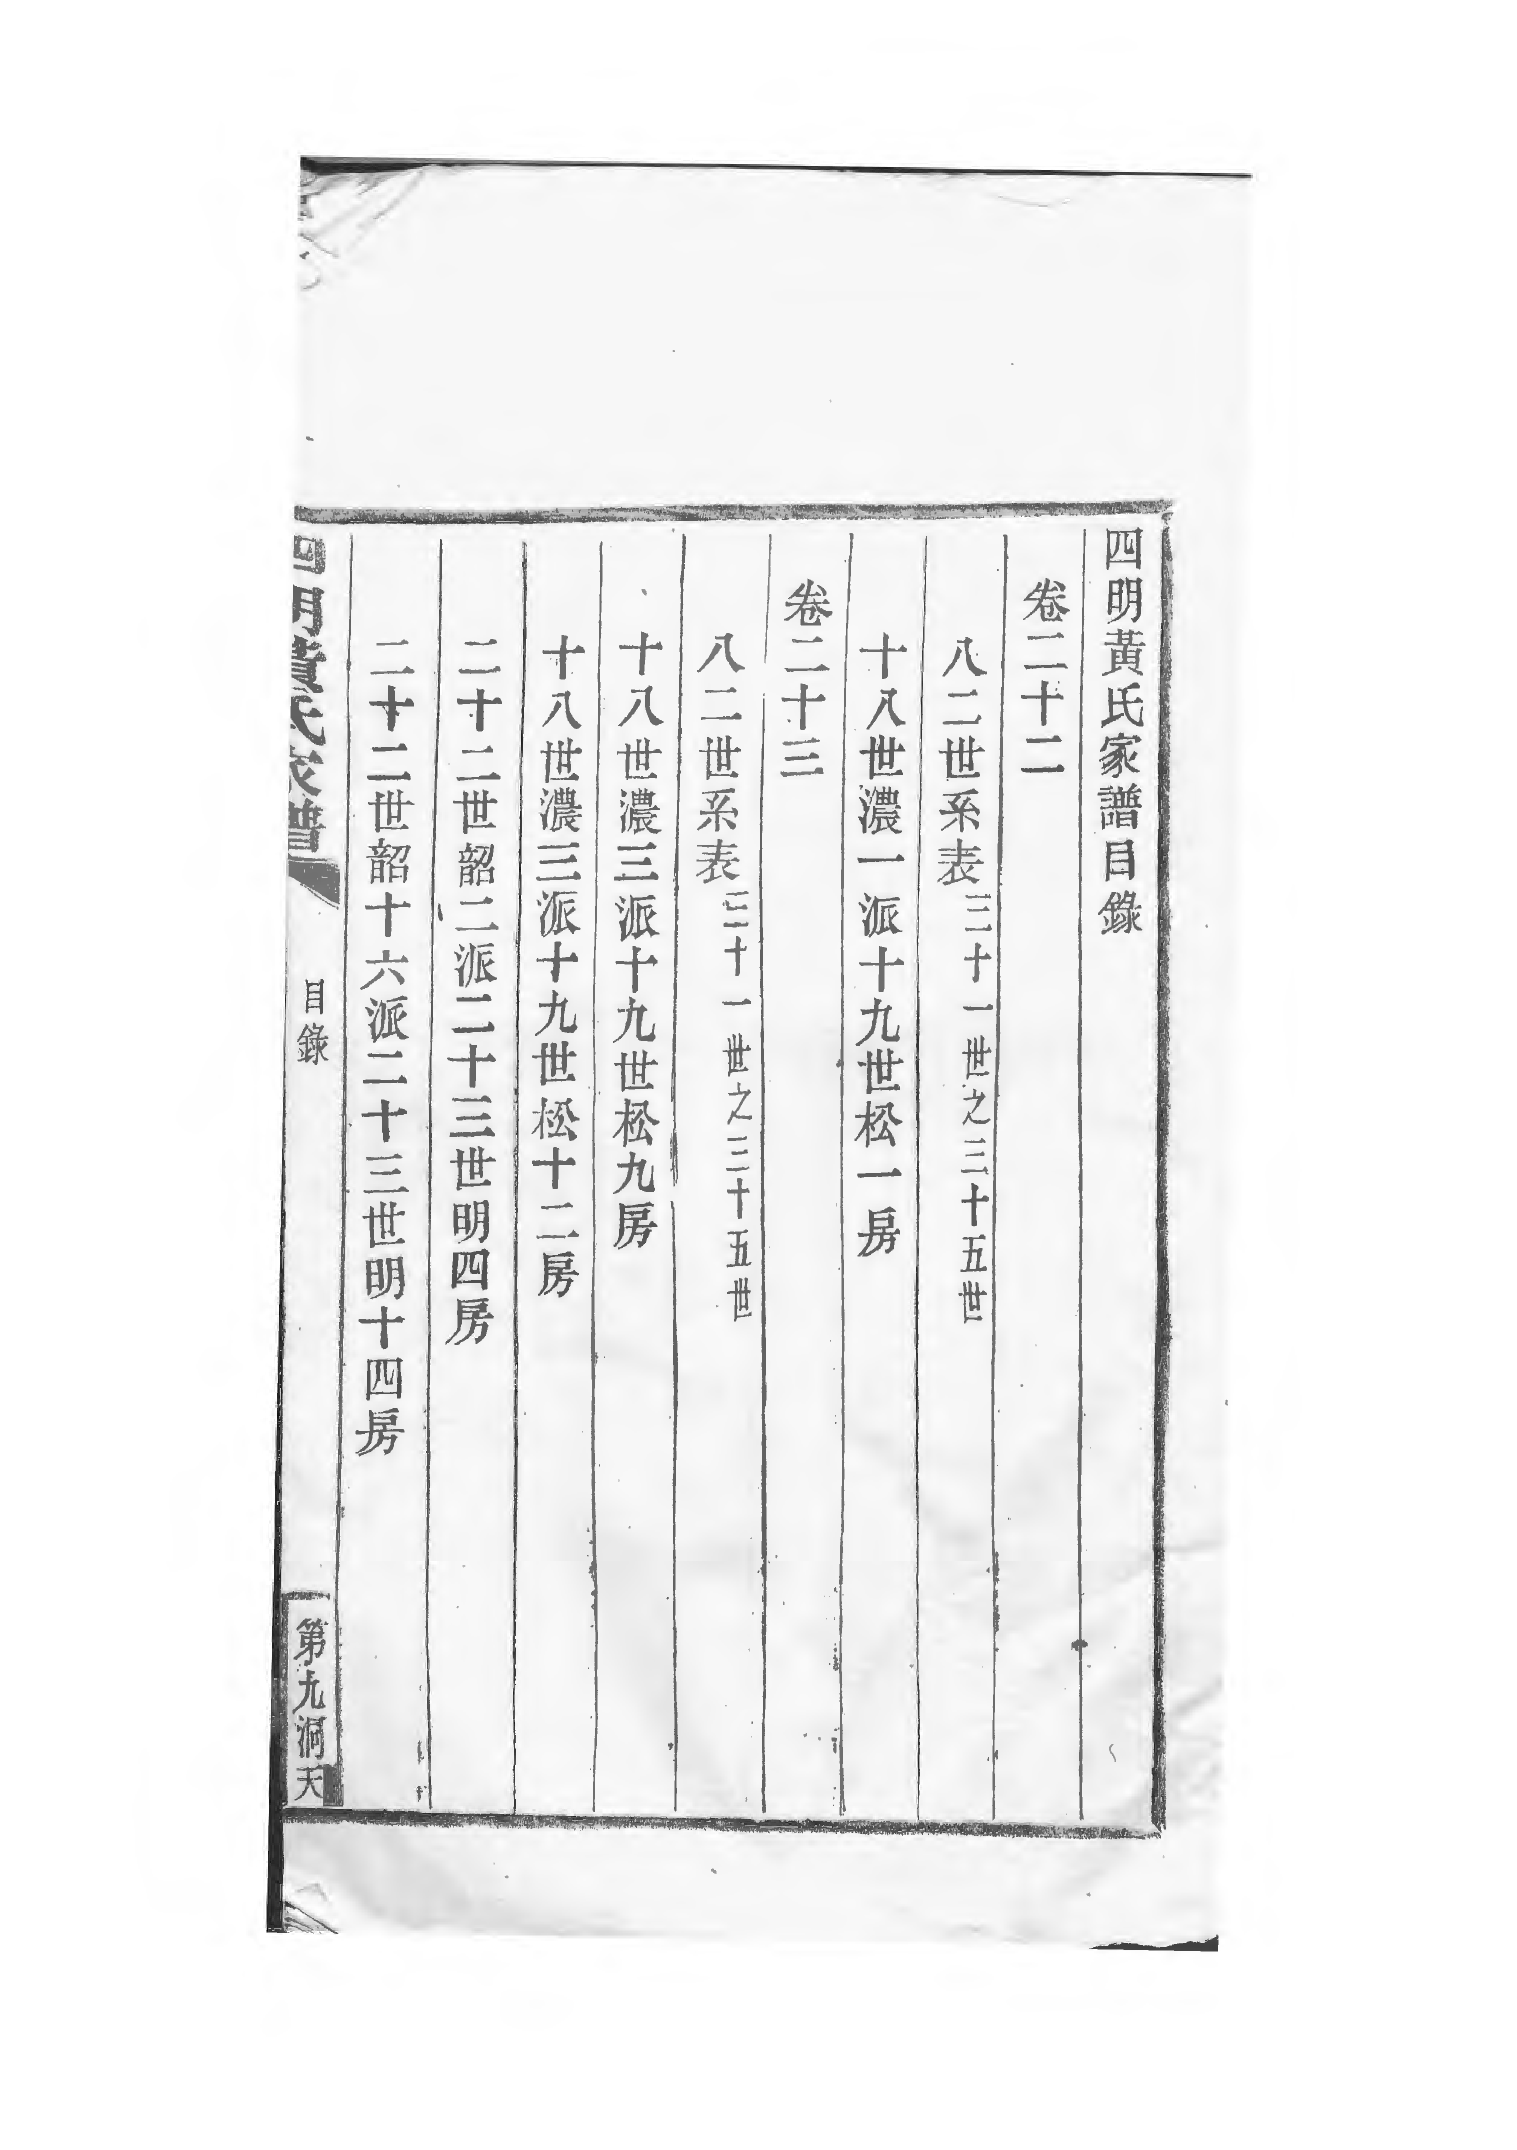 四明黃氏家譜目錄
卷二十二
八二世系表三十一世之三十五世
十八世濃一派十九世松一房
卷二十三
八二世系表三十一世之三十五世
十八世濃三派十九世松九房
十八世濃三派十九世松十二房
二十二世韶二派二十三世明四房
二十二世韶十六派二十三世明十四房
四明黃氏家譜
目錄
第九洞天